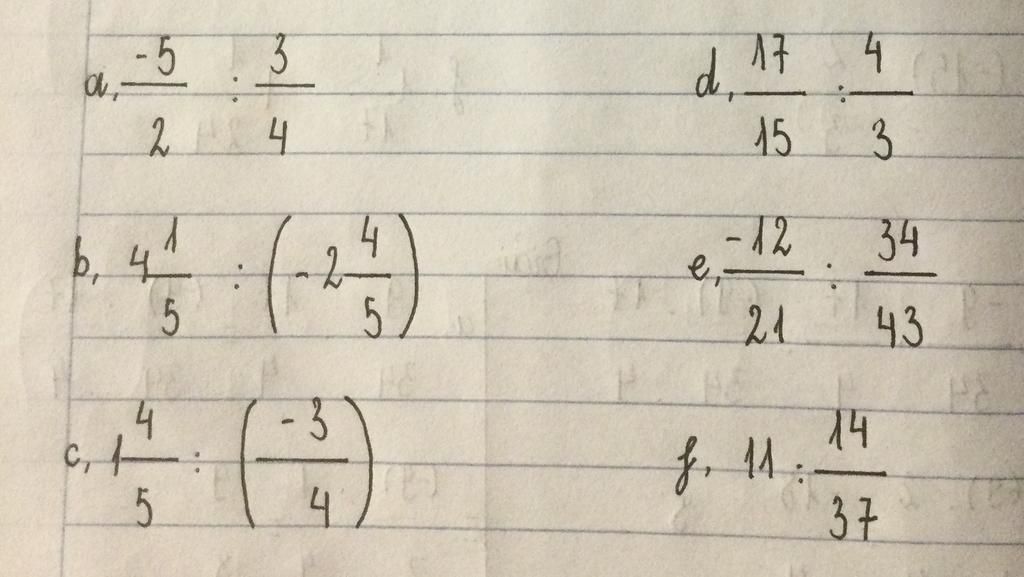 a, -5/2 : 3/4
b, 4 1/5 : (-2 4/5)
c, 1 4/5 : (-3/4)
d, 17/15 : 4/3
e, -12/21 : 34/43
f, 11 : 14/37